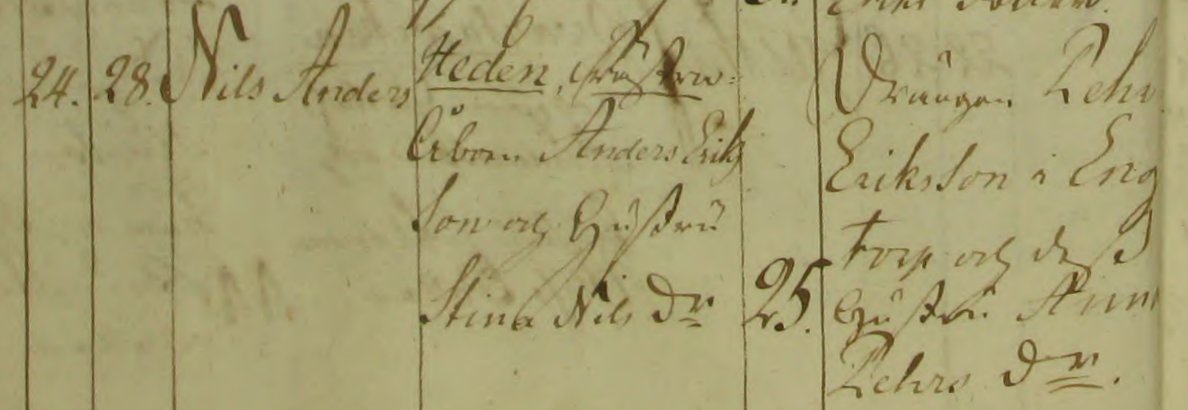 24. 28. Nils Anders
Heden,
Åbon Anders Eriks
son och Hustru
Stina Nils Dr
25.
Drängen Pehr
Eriksson i Eng
torp och dess
Hustru Anna
Pehrs Dr.